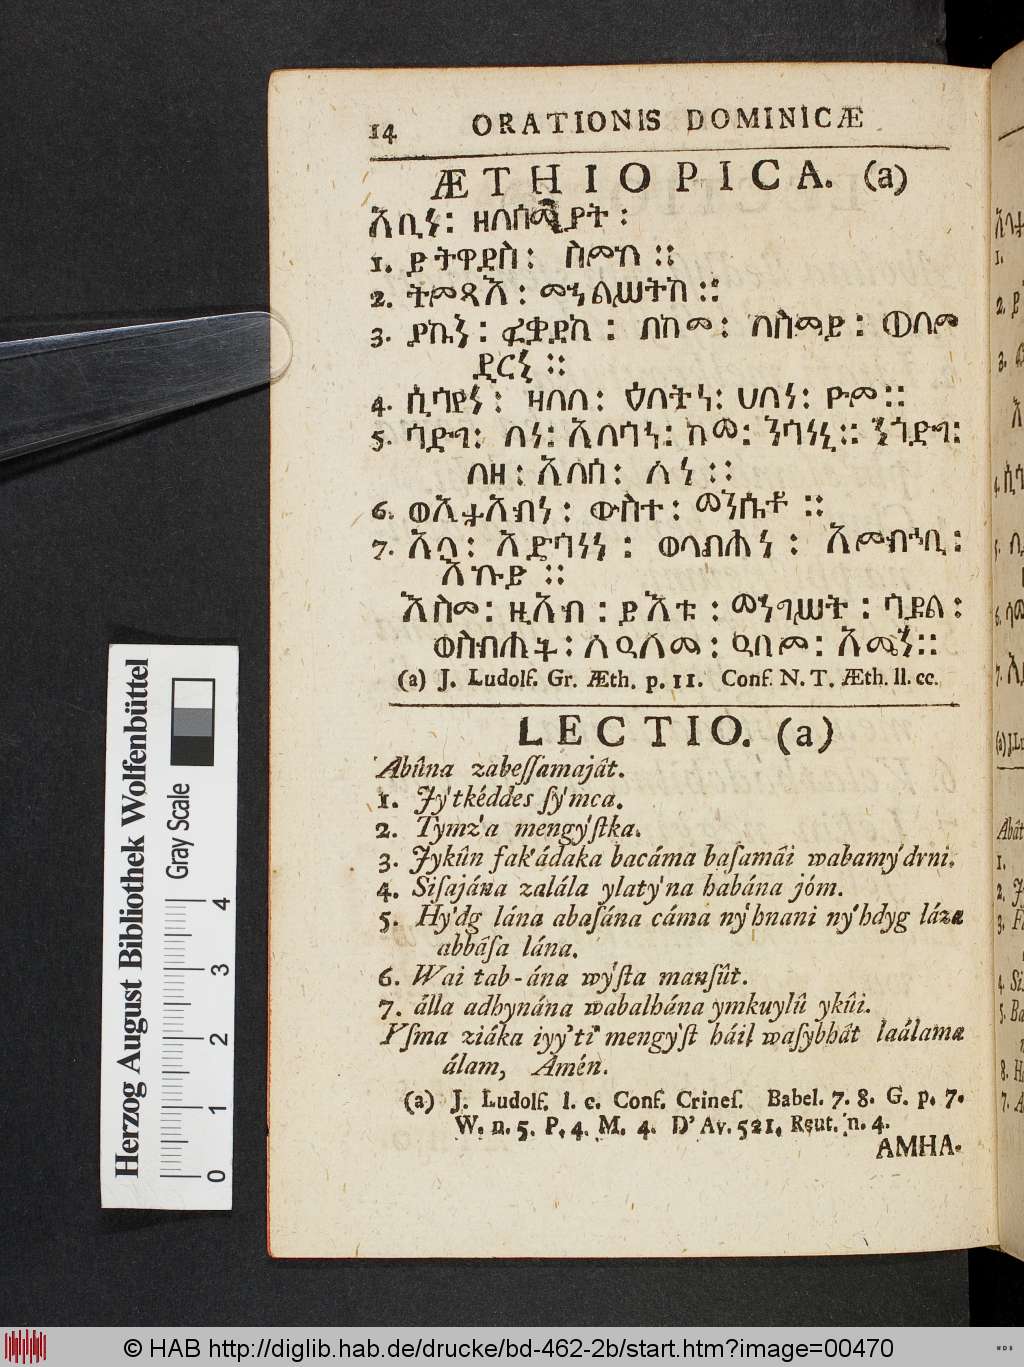 14 ORATIONIS DOMINICÆ
ÆTHIOPICA. (a)
አቡነ፡ ዘበሰማያት፡
1. ይትቀደስ፡ ስምከ ።
2. ትምጻእ፡ መንግሥትከ ።
3. ያኩን፡ ፈቃደከ፡ በከመ፡ በስማይ፡ ወበም
ድርኒ ።
4. ሲሳየነ፡ ዘለለ፡ ዕለትነ፡ ሀበነ፡ ዮም ።
5. ኅድግ፡ ለነ፡ አበሳነ፡ ከመ፡ ንኅነኒ ። ንኅድግ፡
ለዘ፡ አበሰ፡ ለነ ።
6. ወኢታእብነ፡ ውስተ፡ መንሱት ።
7. አላ፡ አድኅነነ፡ ወባልሐነ፡ እምኵሉ፡
እኩይ ።
እስመ፡ ዚአከ፡ ይእቲ፡ መንግሥት፡ ኃይል፡
ወስብሐት፡ ለዓለመ፡ ዓለም፡ አሜን ።
(a) J. Ludolf. Gr. Æth. p. 11. Conf. N. T. Æth. ll. cc.
LECTIO. (a)
Abûna zabeſſamajât.
1. Jy'tkéddes ſy'mca.
2. Tymz'a mengy'ſtka.
3. Jykûn fak'ádaka bacáma baſamâi wabamy'drni.
4. Siſajána zalála ylaty'na habána jóm.
5. Hy'dg lána abaſána cáma ny'hnani ny'hdyg láza
abbáſa lána.
6. Wai tab-ána wy'ſta manſût.
7. álla adhynána wabalhána ymkuylû ykûi.
Yſma ziáka iyy'ti mengy'ſt háil waſybhât laálama
álam, Amén.
(a) J. Ludolf. l. c. Conf. Crineſ. Babel. 7. 8. G. p. 7.
W. n. 5. P. 4. M. 4. D'Av. 521. Reut. n. 4.
AMHA-
Herzog August Bibliothek Wolfenbüttel
Gray Scale
0 1 2 3 4
© HAB http://diglib.hab.de/drucke/bd-462-2b/start.htm?image=00470